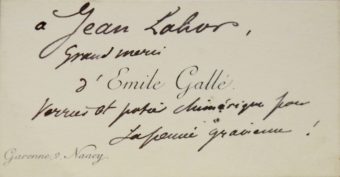 à Jean Lahor,
Grand merci
d'Emile Gallé.
Verrier et potier chimérique pour
La pensée
Garenne, 2, Nancy.